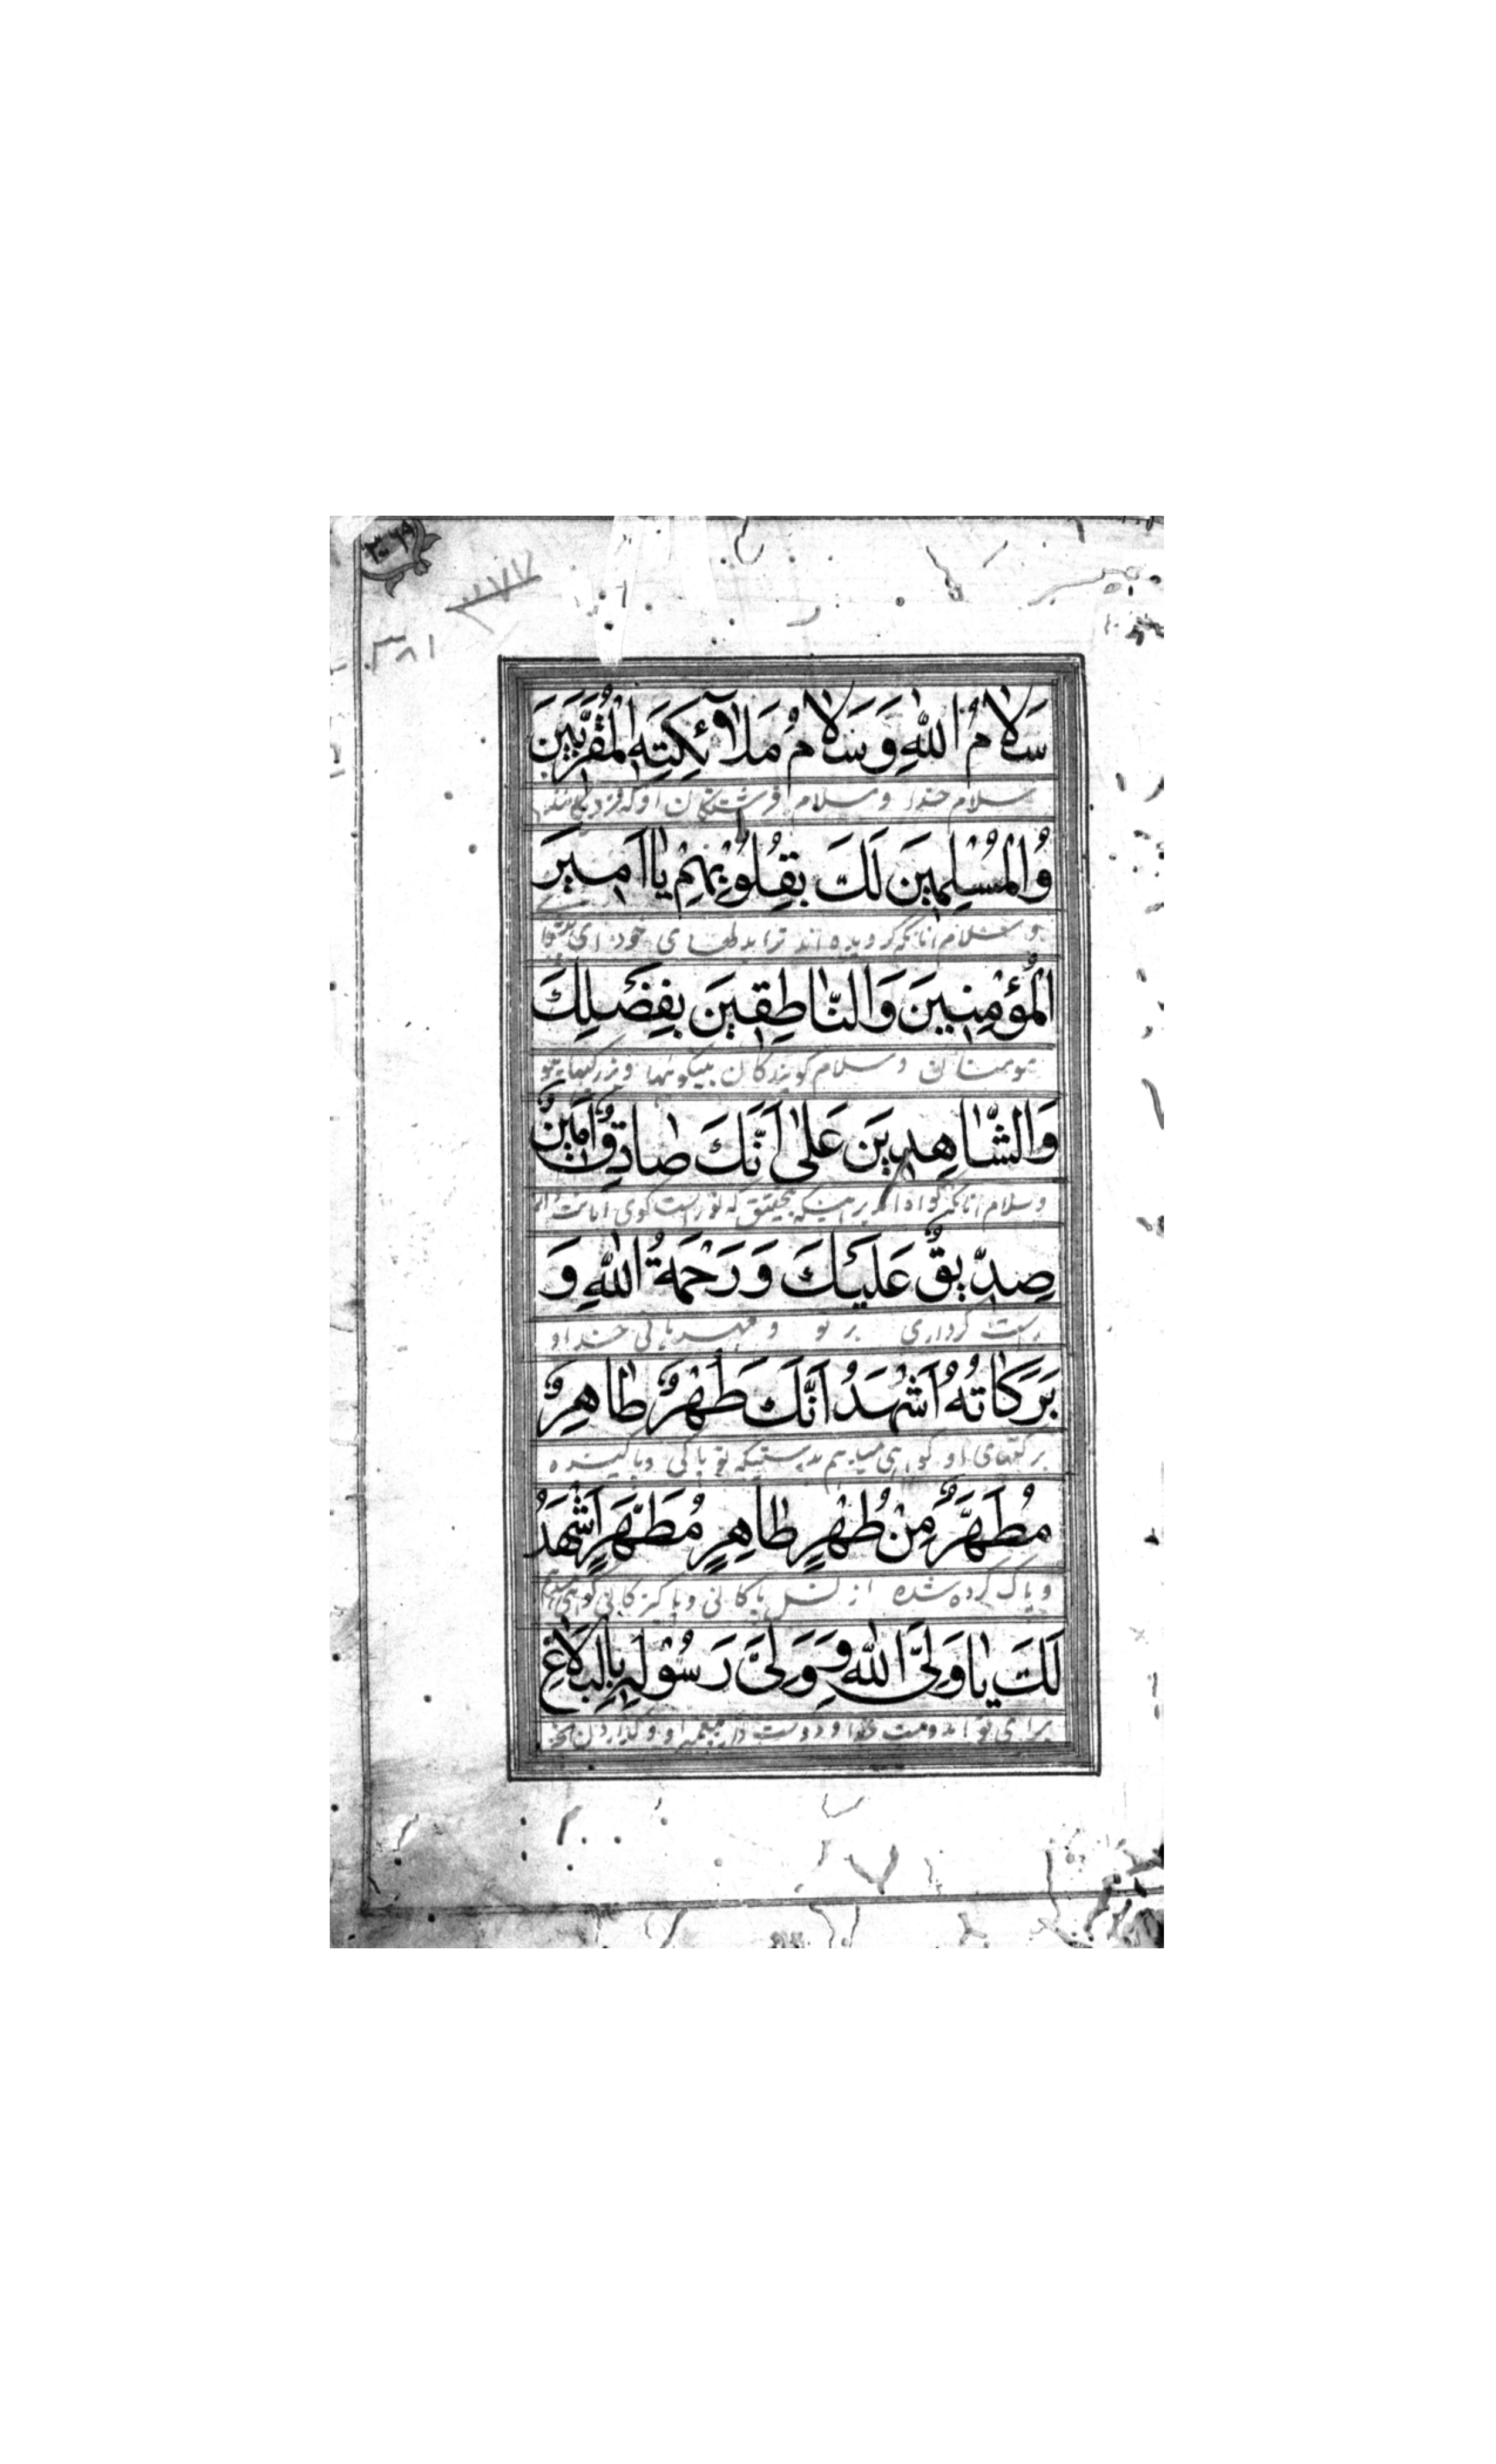 ۳۷۷
۳۸۱
سَلَامُ اللّٰهِ وَسَلَامُ مَلٰٓائِكَتِهِ الْمُقَرَّبَيْنَ
سلام خدا و سلام فرشتگان او که نزدیکانند
وُالْمُسْلِمِيَنَ لَكَ بِقُلُوُبِهِمْ يٰا اَمِيَر
و سلام آنانکه گرویده‌اند ترا بدلهای خود ای
الْمُؤْمِنِيٖنَ وَالنّٰاطِقٖينَ بِفَضْلِكَ
مومنان و سلام گویندگان بنیکوئیها و بزرگیهای تو
وَالشّٰاهِدٖيَن عَلٰى اَنَّكَ صٰادِقٌ اَمٖيٌن
و سلام آنانکه گواه‌اند بر اینکه بتحقیق که تو راست گوی
صِدّٖيقٌ عَلَيْكَ وَ رَحْمَةُ اللّٰهِ وَ
راست کرداری بر تو و مهربانی خدا و
بَرَكٰاتُهُ اَشْهَدُ اَنَّكَ طَهْرٌ طٰاهِرٌ
برکتهای او گواهی میدهم بدرستیکه تو پاکی و پاکیزه
مُطَهَّرٌ مِنْ طُهْرٍ طٰاهِرٍ مُطَهَّرٍ اَشْهَدُ
و پاک کرده شده از نسل پاکانی و پاکیزگانی گواهی میدهم
لَكَ يٰا وَلِىَّ اللّٰهِ وَ وَلِىَّ رَسُوْلِهِ بِالْبَلَاغِ
برای تو ای دوست خدا و دوست دار پیغمبر او